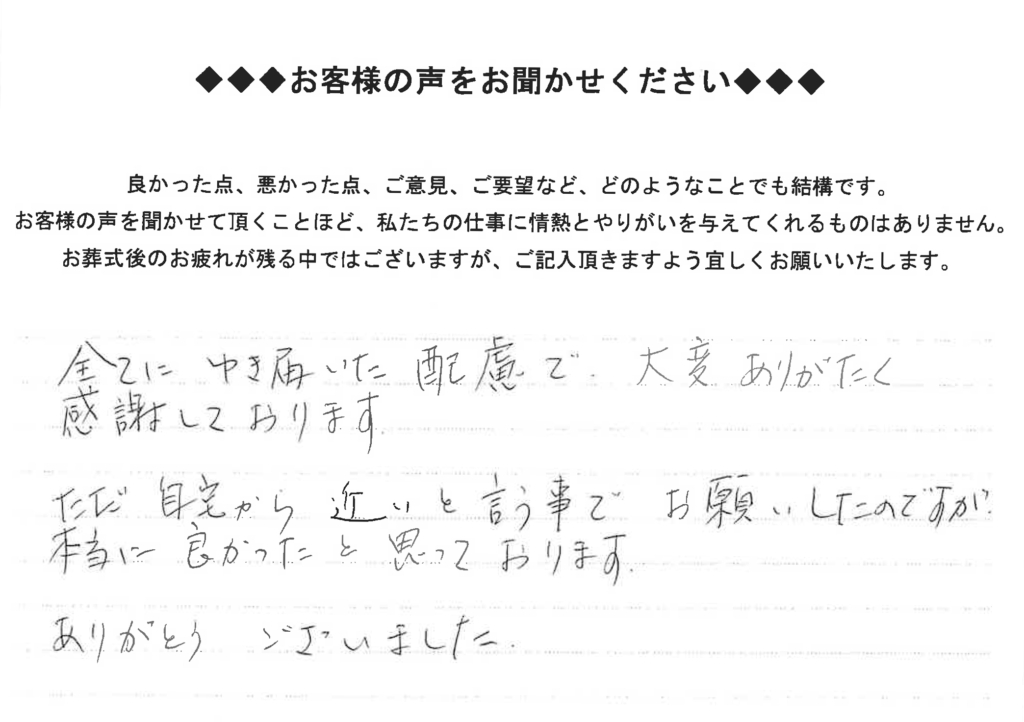 ◆◆◆お客様の声をお聞かせください◆◆◆
良かった点、悪かった点、ご意見、ご要望など、どのようなことでも結構です。
お客様の声を聞かせて頂くことほど、私たちの仕事に情熱とやりがいを与えてくれるものはありません。
お葬式後のお疲れが残る中ではございますが、ご記入頂きますよう宜しくお願いいたします。
全てに ゆき届いた 配慮で、大変 ありがたく
感謝しております。
ただ 自宅から 近いと 言う事で お願いしたのですが、
本当に 良かったと 思っております。
ありがとう ございました。